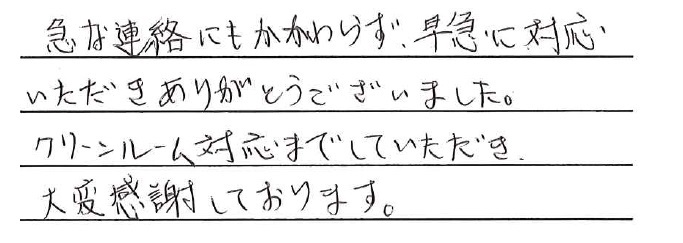 急な連絡にもかかわらず、早急に対応
いただきありがとうございました。
クリーンルーム対応までしていただき、
大変感謝しております。